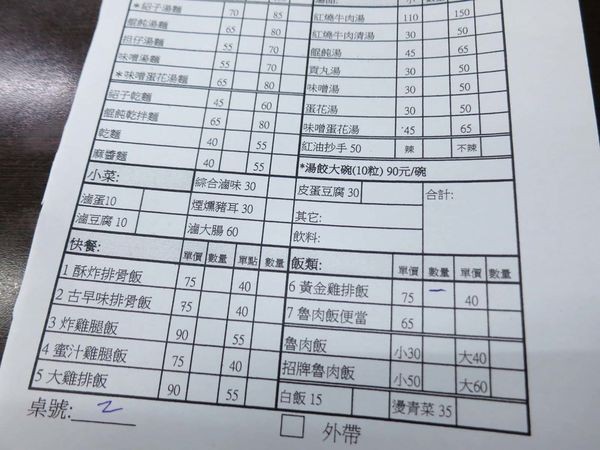 *紹子湯麵 70 85
餛飩湯麵 65 80
担仔湯麵 55 70
味噌湯麵 55 70
*味噌蛋花湯麵 65 80
紹子乾麵 45 60
餛飩乾拌麵 65 80
乾麵 40 55
麻醬麵 40 55
紅燒牛肉湯 110 150
紅燒牛肉清湯 30 50
餛飩湯 45 65
貢丸湯 30 50
味噌湯 30 50
蛋花湯 30 50
味噌蛋花湯 45 65
紅油抄手 50 辣 不辣
*湯餃大碗(10粒) 90元/碗
小菜: 綜合滷味 30 皮蛋豆腐 30 合計:
滷蛋10 煙燻豬耳 30 其它:
滷豆腐 10 滷大腸 60 飲料:
快餐: 單價 數量 單點 數量
1 酥炸排骨飯 75 40
2 古早味排骨飯 75 40
3 炸雞腿飯 90 55
4 蜜汁雞腿飯 75 40
5 大雞排飯 90 55
飯類: 單價 數量 單價 數量
6 黃金雞排飯 75 一 40
7 魯肉飯便當 65
魯肉飯 小30 大40
招牌魯肉飯 小50 大60
白飯 15 燙青菜 35
桌號: 2
外帶